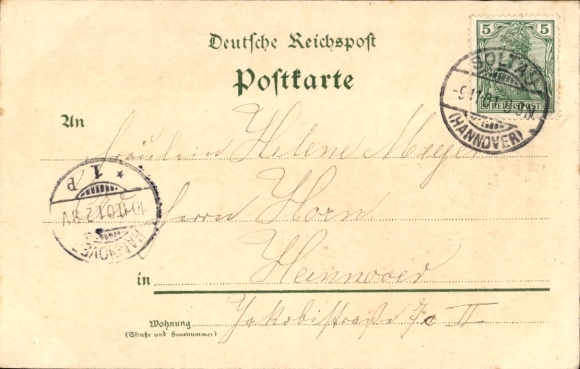 Deutsche Reichspost
Postkarte
5 5
REICHSPOST
SOLTAU
(HANNOVER)
An Fräulein Helene Meyer
* 1 P
HANNOVER
Herrn Horn
in Hannover
Jakobistraße II
Wohnung
(Straße und Hausnummer)